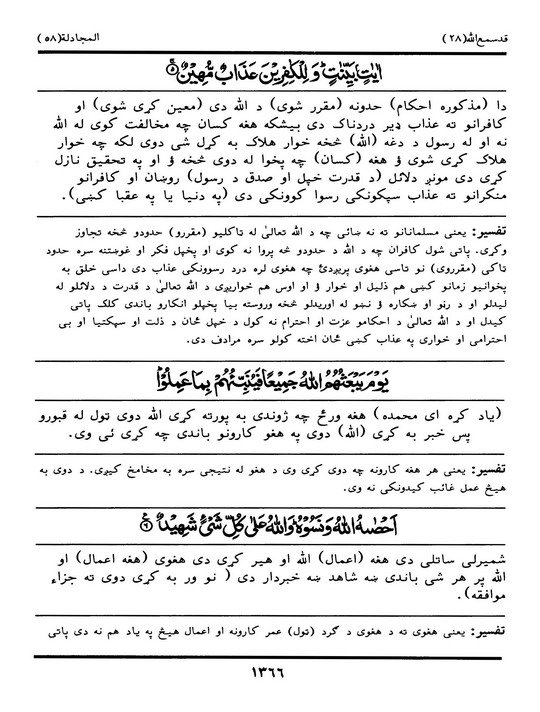 قدسمع الله (۲۸) المجادلة (۵۸)
اٰیٰتٍۭ بَیِّنٰتٍ وَ لِلْكٰفِرِیْنَ عَذَابٌ مُّهِیْنٌ ۵
دا (مذکوره احکام) حدونه (مقرر شوی) د الله دی (معین کړی شوی) او
کافرانو ته عذاب ډیر دردناک دی بیشکه هغه کسان چه مخالفت کوی له الله
نه او له رسول د دغه (الله) څخه خوار هلاک به کړل شی دوی لکه چه خوار
هلاک کړی شوی ؤ هغه (کسان) چه پخوا له دوی څخه ؤ او په تحقیق نازل
کړی دی مونږ دلائل (د قدرت خپل او صدق د رسول) روښان او کافرانو
منکرانو ته عذاب سپکونکی رسوا کوونکی دی (په دنیا یا په عقبا کښی).
تفسیر: یعنی مسلمانانو ته نه ښائی چه د الله تعالیٰ له ټاکلیو (مقررو) حدودو څخه تجاوز
وکړی. پاتی شول کافران چه د الله د حدودو څه پروا نه کوی او پخپل فکر او غوښتنه سره حدود
ټاکی (مقرروی) نو تاسی هغوی پریږدئ چه هغوی لره درد رسوونکی عذاب دی داسی خلق به
پخوانیو زمانو کښی هم ذلیل او خوار ؤ او اوس هم خواریږی د الله تعالیٰ د قدرت د دلائلو له
لیدلو او د رڼو او ښکاره ؤ نښو له اوریدلو څخه وروسته بیا پخپلو انکارو باندی کلک پاتی
کیدل او د الله تعالیٰ د احکامو عزت او احترام نه کول د خپل ځان د ذلت او سپکتیا او بی
احترامی او خواری په عذاب کښی ځان اخته کولو سره مرادف دی.
یَوْمَ یَبْعَثُهُمُ اللّٰهُ جَمِیْعًا فَیُنَبِّئُهُمْ بِمَا عَمِلُوْا
(یاد کړه ای محمده) هغه ورځ چه ژوندی به پورته کړی الله دوی ټول له قبورو
پس خبر به کړی (الله) دوی په هغو کارونو باندی چه کړی ئی وی.
تفسیر: یعنی هر هغه کارونه چه دوی کړی وی د هغو له نتیجی سره به مخامخ کیږی. د دوی به
هیڅ عمل غائب کیدونکی نه وی.
اَحْصٰىهُ اللّٰهُ وَ نَسُوْهُ وَ اللّٰهُ عَلٰی كُلِّ شَیْءٍ شَهِیْدٌ ۶
شمیرلی ساتلی دی هغه (اعمال) الله او هیر کړی دی هغوی (هغه اعمال) او
الله پر هر شی باندی ښه شاهد ښه خبردار دی ( نو ور به کړی دوی ته جزاء
موافقه).
تفسیر: یعنی هغوی ته د هغوی د ګرد (ټول) عمر کارونه او اعمال هیڅ په یاد هم نه دی پاتی
۱۳۶۶